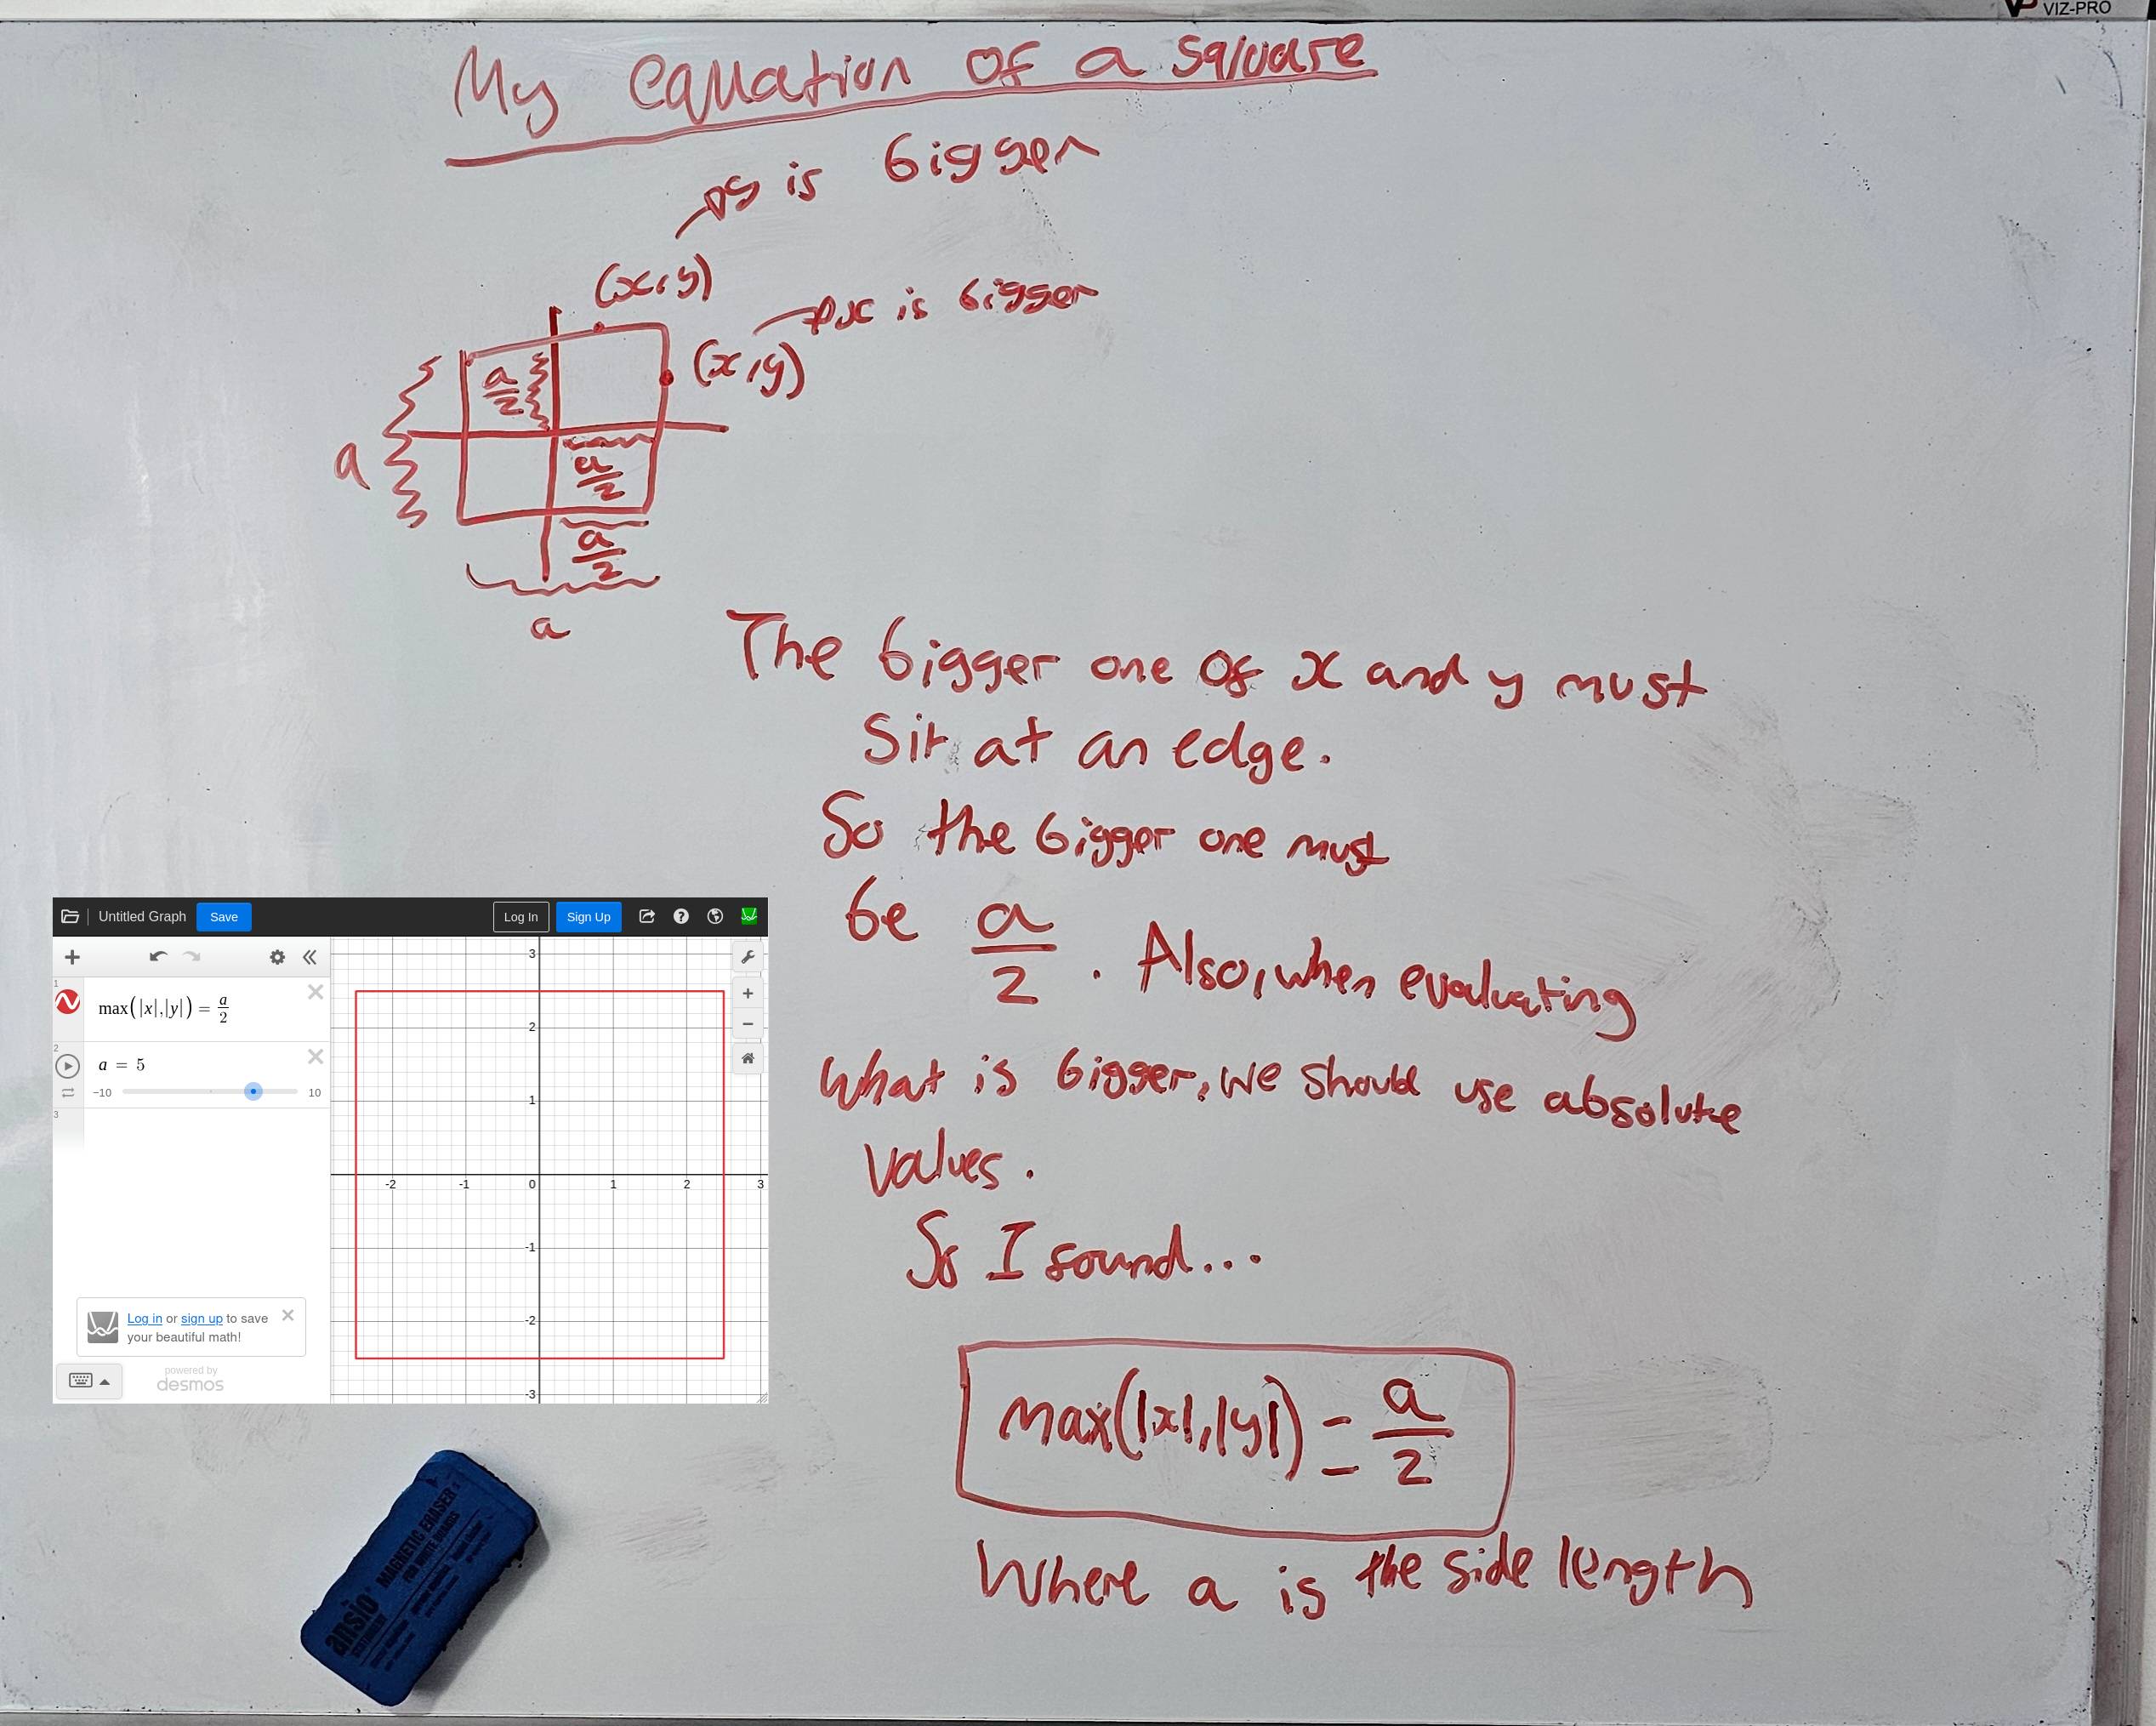 VIZ-PRO
My equation of a square
y is bigger
(x,y)
x is bigger
(x,y)
a/2
a
a/2
a/2
a
The bigger one of x and y must
sit at an edge.
So the bigger one must
be a/2. Also, when evaluating
what is bigger, we should use absolute
values.
So I found...
max(|x|,|y|) = a/2
Where a is the side length
Untitled Graph Save Log In Sign Up
1
max(|x|,|y|) = a/2
2
a = 5
-10 10
3
Log in or sign up to save
your beautiful math!
powered by
desmos
3
2
1
-2 -1 0 1 2 3
-1
-2
-3
ansio
MAGNETIC ERASER